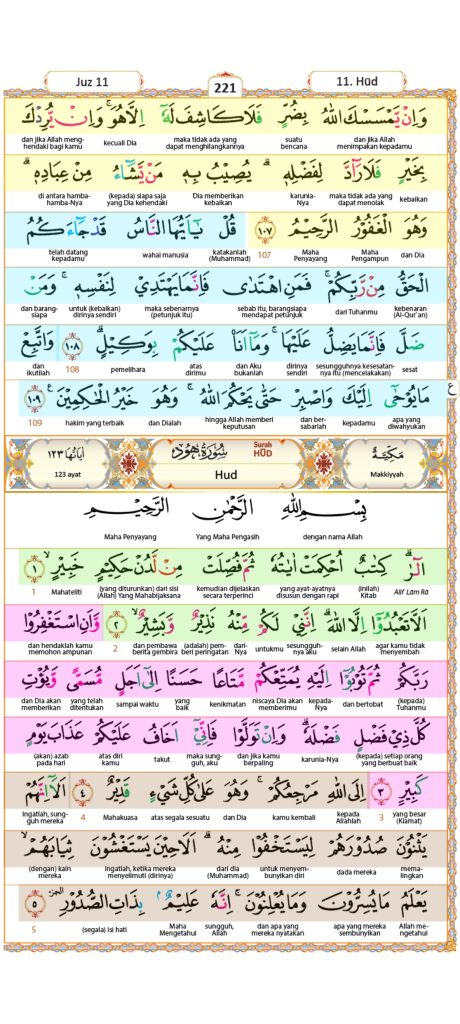 Juz 11
221
11. Hūd
وَاِنْ يَّمْسَسْكَ اللّٰهُ بِضُرٍّ فَلَا كَاشِفَ لَهٗٓ اِلَّا هُوَ ۚ وَاِنْ يُّرِدْكَ
dan jika Allah menimpakan kepadamu suatu bencana maka tidak ada yang dapat menghilangkannya kecuali Dia dan jika Allah meng-hendaki bagi kamu
بِخَيْرٍ فَلَا رَاۤدَّ لِفَضْلِهٖ ۗ يُصِيْبُ بِهٖ مَنْ يَّشَاۤءُ مِنْ عِبَادِهٖ ۗ
kebaikan maka tidak ada yang dapat menolak karunia-Nya Dia memberikan kebaikan (kepada) siapa saja yang Dia kehendaki di antara hamba-hamba-Nya
وَهُوَ الْغَفُوْرُ الرَّحِيْمُ ١٠٧ قُلْ يٰٓاَيُّهَا النَّاسُ قَدْ جَاۤءَكُمُ
dan Dia Maha Pengampun Maha Penyayang 107 katakanlah (Muhammad) wahai manusia telah datang kepadamu
الْحَقُّ مِنْ رَّبِّكُمْ ۚ فَمَنِ اهْتَدٰى فَاِنَّمَا يَهْتَدِيْ لِنَفْسِهٖ ۚ وَمَنْ
kebenaran (Al-Qur'an) dari Tuhanmu sebab itu, barangsiapa mendapat petunjuk maka sebenarnya (petunjuk itu) untuk (kebaikan) dirinya sendiri dan barang-siapa
ضَلَّ فَاِنَّمَا يَضِلُّ عَلَيْهَا ۚ وَمَآ اَنَا۠ عَلَيْكُمْ بِوَكِيْلٍ ۗ ١٠٨ وَاتَّبِعْ
sesat sesungguhnya kesesatan-nya itu (mencelakakan) dirinya sendiri dan Aku bukanlah atas dirimu pemelihara 108 dan ikutilah
مَا يُوْحٰٓى اِلَيْكَ وَاصْبِرْ حَتّٰى يَحْكُمَ اللّٰهُ ۚ وَهُوَ خَيْرُ الْحٰكِمِيْنَ ۚ ١٠٩ ع
apa yang diwahyukan kepadamu dan ber-sabarlah hingga Allah memberi keputusan dan Dialah hakim yang terbaik 109
مَكِّيَّةٌ Surah HŪD سُوْرَةُ هُوْدٍ اٰيَاتُهَا ١٢٣
Makkiyyah Hud 123 ayat
بِسْمِ اللّٰهِ الرَّحْمٰنِ الرَّحِيْمِ
dengan nama Allah Yang Maha Pengasih Maha Penyayang
الۤرٰ ۗ كِتٰبٌ اُحْكِمَتْ اٰيٰتُهٗ ثُمَّ فُصِّلَتْ مِنْ لَّدُنْ حَكِيْمٍ خَبِيْرٍ ۙ ١
Alif Lām Rā (inilah) Kitab yang ayat-ayatnya disusun dengan rapi kemudian dijelaskan secara terperinci (yang diturunkan) dari sisi (Allah) Yang Mahabijaksana Mahateliti 1
اَلَّا تَعْبُدُوْٓا اِلَّا اللّٰهَ ۗ اِنَّنِيْ لَكُمْ مِّنْهُ نَذِيْرٌ وَّبَشِيْرٌ ۙ ٢ وَّاَنِ اسْتَغْفِرُوْا
agar kamu tidak menyembah selain Allah sesungguh-nya aku untukmu dari-Nya (adalah) pem-beri peringatan dan pembawa berita gembira 2 dan hendaklah kamu memohon ampunan
رَبَّكُمْ ثُمَّ تُوْبُوْٓا اِلَيْهِ يُمَتِّعْكُمْ مَّتَاعًا حَسَنًا اِلٰٓى اَجَلٍ مُّسَمًّى وَّيُؤْتِ
(kepada) Tuhanmu dan bertobat kepada-Nya niscaya Dia akan memberimu kenikmatan yang baik sampai waktu yang telah ditentukan dan Dia akan memberikan
كُلَّ ذِيْ فَضْلٍ فَضْلَهٗ ۗ وَاِنْ تَوَلَّوْا فَاِنِّيْٓ اَخَافُ عَلَيْكُمْ عَذَابَ يَوْمٍ
(kepada) setiap orang yang berbuat baik karunia-Nya dan jika kamu berpaling maka sung-guh, aku takut atas diri kamu (akan) azab pada hari
كَبِيْرٍ ٣ اِلَى اللّٰهِ مَرْجِعُكُمْ ۚ وَهُوَ عَلٰى كُلِّ شَيْءٍ قَدِيْرٌ ٤ اَلَآ اِنَّهُمْ
yang besar (Kiamat) 3 kepada Allahlah kamu kembali dan Dia atas segala sesuatu Mahakuasa 4 ingatlah, sung-guh mereka
يَثْنُوْنَ صُدُوْرَهُمْ لِيَسْتَخْفُوْا مِنْهُ ۗ اَلَا حِيْنَ يَسْتَغْشُوْنَ ثِيَابَهُمْ ۙ
mema-lingkan dada mereka untuk menyem-bunyikan diri dari dia (Muhammad) ingatlah, ketika mereka menyelimuti (dirinya) (dengan) kain mereka
يَعْلَمُ مَا يُسِرُّوْنَ وَمَا يُعْلِنُوْنَ ۚ اِنَّهٗ عَلِيْمٌ ۢ بِذَاتِ الصُّدُوْرِ ۔ الجزء ٥
Allah me-ngetahui apa yang mereka sembunyikan dan apa yang mereka nyatakan sungguh, Allah Maha Mengetahui (segala) isi hati 5